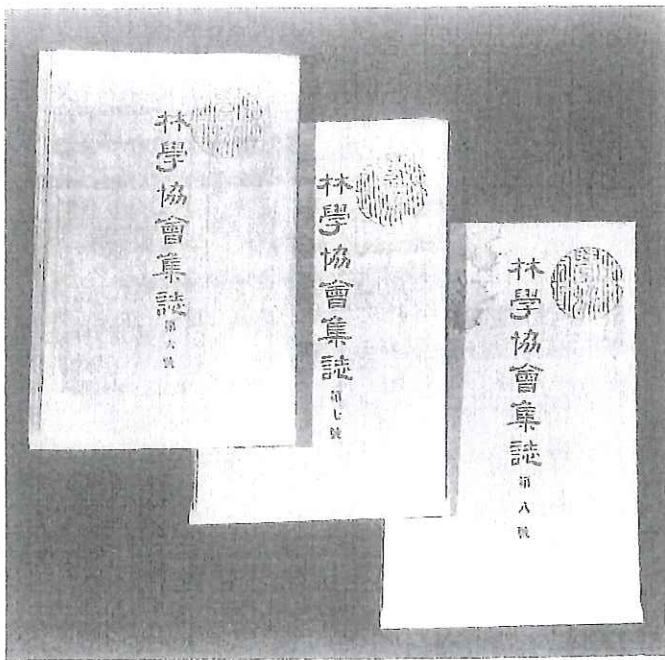 林學協會集誌第六號
林學協會集誌第七號
林學協會集誌第八號